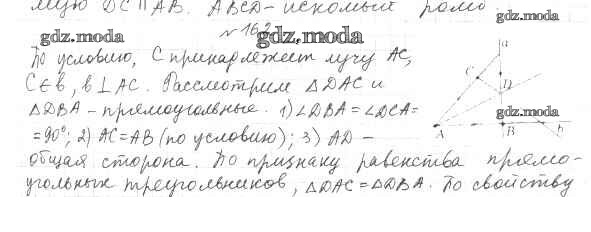 мую DC || AB. ABCD - искомый ромб
gdz.moda
№ 162
gdz.moda
gdz.moda
По условию, C принадлежит лучу AC,
C ∈ b, b ⊥ AC. Рассмотрим △DAC и
△DBA - прямоугольные. 1) ∠DBA = ∠DCA =
= 90°; 2) AC = AB (по условию); 3) AD -
общая сторона. По признаку равенства прямо-
угольных треугольников, △DAC = △DBA. По свойству
a
C
D
gdz.moda
A
B
b